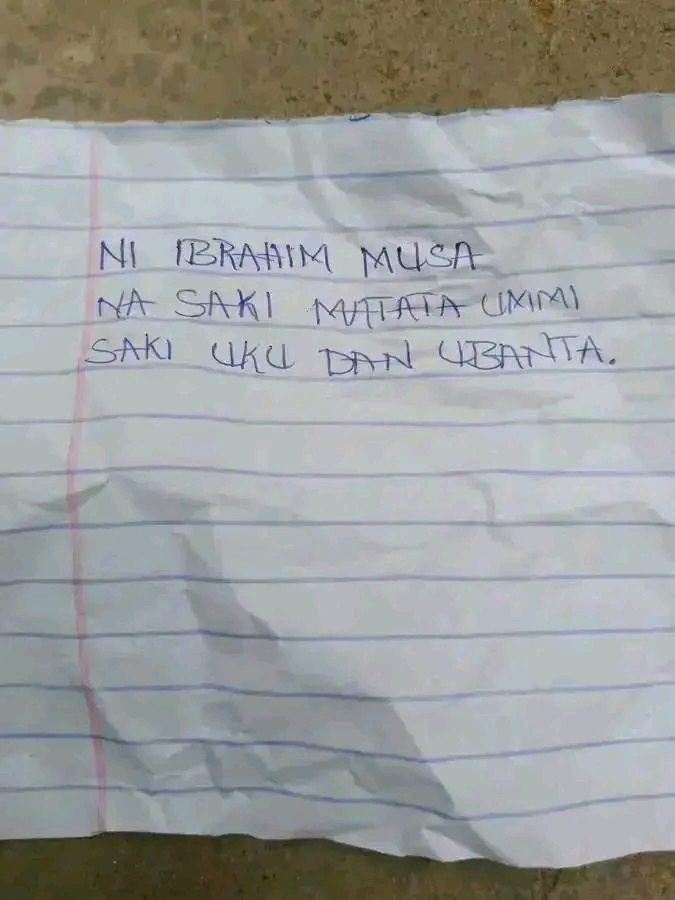 NI IBRAHIM MUSA
NA SAKI MATATA UMMI
SAKI UKU DAN UBANTA.